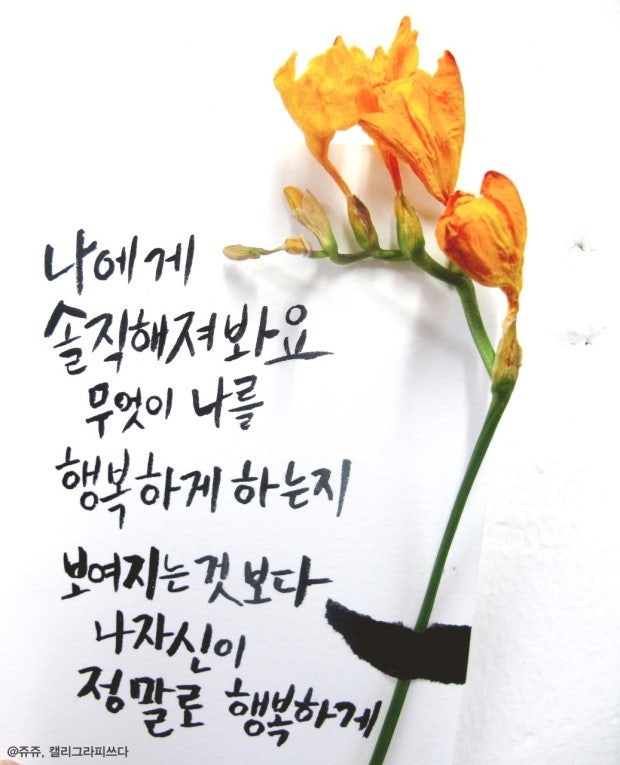 나에게
솔직해져봐요
무엇이 나를
행복하게 하는지
보여지는것보다
나자신이
정말로 행복하게
@쥬쥬, 캘리그라피쓰다